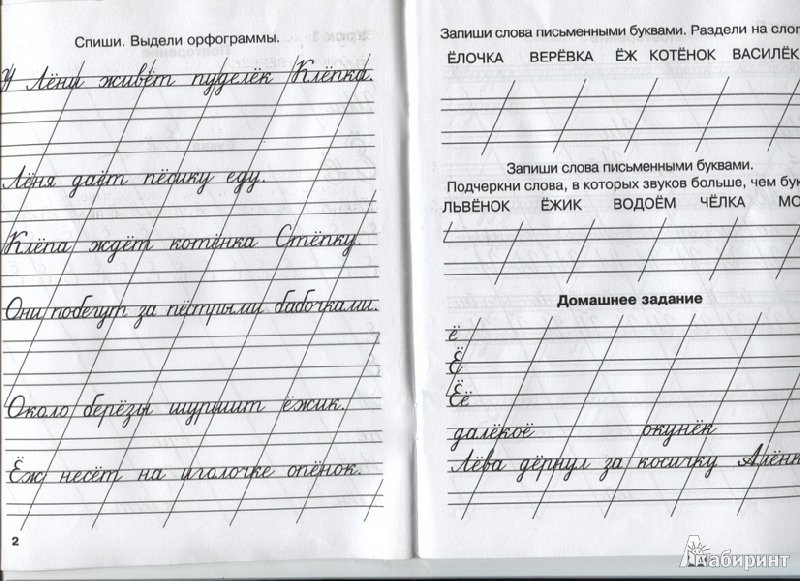 Спиши. Выдели орфограммы.
У Лёни живёт пуделёк Клёпка.
Лёня даёт пёсику еду.
Клёпа ждёт котёнка Стёпку.
Они побегут за пёстрыми бабочками.
Около берёзы шуршит ёжик.
Ёж несёт на иголочке опёнок.
2
Запиши слова письменными буквами. Раздели на
ЁЛОЧКА ВЕРЁВКА ЁЖ КОТЁНОК ВАСИЛЁК
Запиши слова письменными буквами.
Подчеркни слова, в которых звуков больше, чем
ЛЬВЁНОК ЁЖИК ВОДОЁМ ЧЁЛКА
Домашнее задание
ё
Ё
Ё
Ёё
далёкоё окунёк
Лёва дёрнул за косичку
Лабиринт